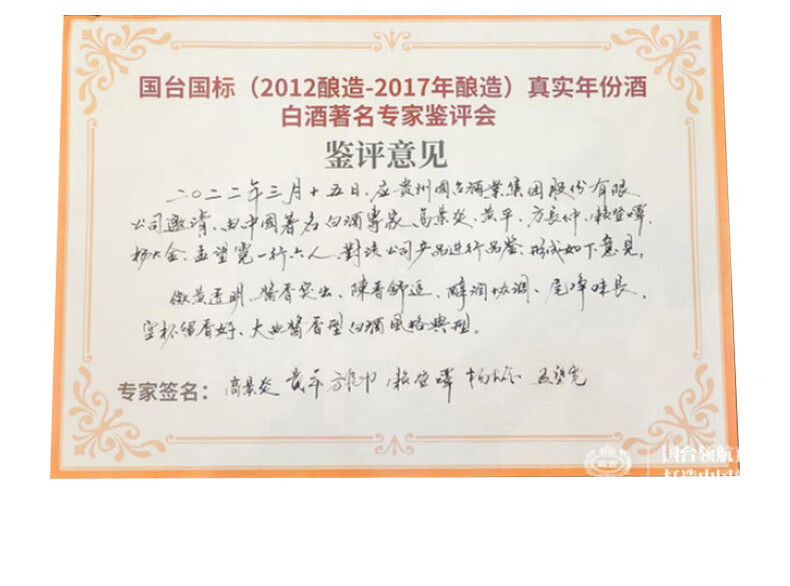 国台国标（2012酿造-2017年酿造）真实年份酒
白酒著名专家鉴评会
鉴评意见
二〇二二年三月十五日、应贵州国台酒業集団股份有限
公司邀请、由中国著名白酒專家、高景炎、黄平、方長仲、賴登燡、
杨大金、孟望霓一行六人、對该公司产品进行品鉴、形成如下意見。
微黄透明、醬香突出、陳香舒适、醇润协调、尾净味長、
空杯留香好、大曲醬香型白酒风格典型。
专家签名：高景炎 黄平 方長仲 賴登燡 杨大金 孟望霓
国台领航
打造中国